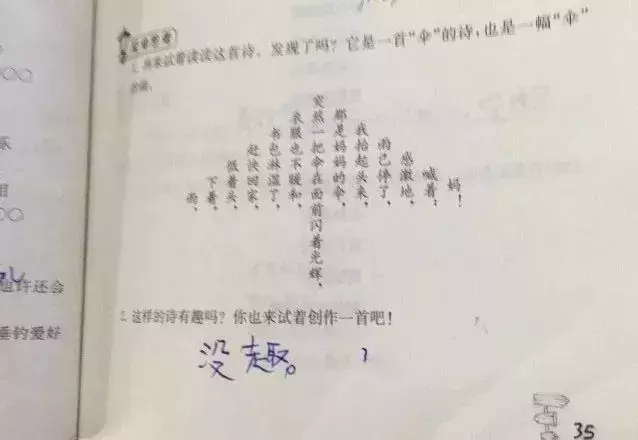 1. 再来试着读读这首诗，发现了吗？它是一首“伞”的诗，也是一幅“伞”
雨，
下着，
低着头，
赶快回家，
书包淋湿了，
衣服也不暖和，
突然一把伞在面前闪着光辉，
那是妈妈的伞，
我抬起头来，
雨已停了，
感激地，
喊着：
妈！
2. 这样的诗有趣吗？你也来试着创作一首吧！
没趣。
也许还会
垂钓爱好
35